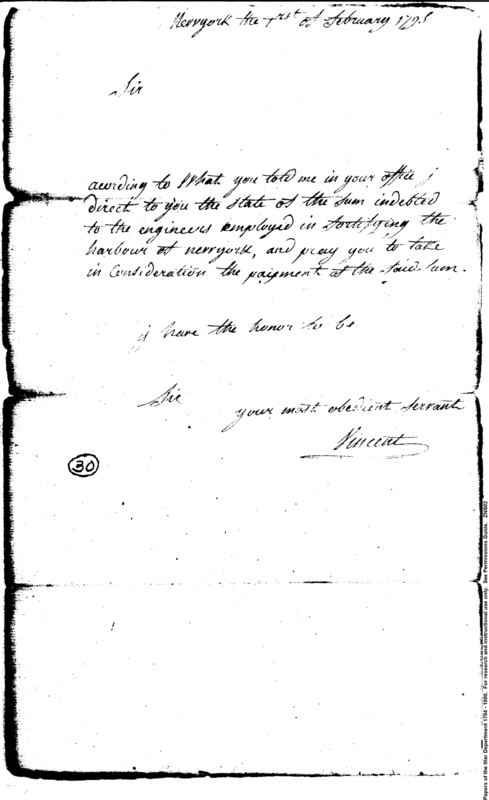 Newyork the 1rst of february 1795
Sir
acording to What you told me in your office j
direct to you the state of the sum indebted
to the engineers employed in fortifying the
harbour of newyork, and pray you to take
in Consideration the paipment of the said sum.
j have the honor to be
Sir
your most obedient servant
Vincent
30
Papers of the War Department 1784 - 1800. For research and instructional use only. See Permissions Guide. ZNB02